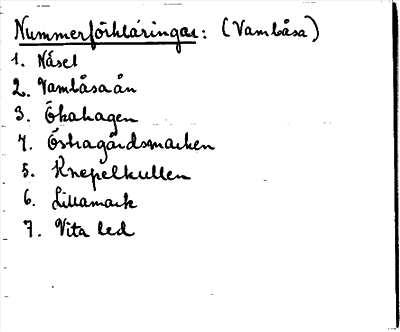 Nummerförklaringar: (Vambåsa)
1. Näset
2. Vambåsaån
3. Ekahagen
4. Östragårdsmarken
5. Knepelkullen
6. Lillamark
7. Vita led